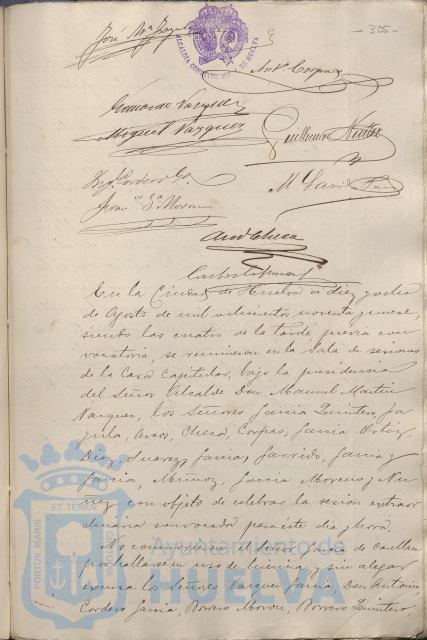 - 305 -
ALCALDIA CONSTITUCIONAL DE HUELVA
José Mª
Antº Corpas
Vazquez
Miguel Vazquez
Guillermo Muñoz
Cordero Gª
M. Garcia
Franco Gª Moreno
Anº Checa
En la Ciudad de Huelva a diez y ocho
de Agosto de mil ochocientos noventa y nueve,
siendo las cuatro de la tarde previa con
vocatoria, se reunieron en la Sala de sesiones
de la Casa Capitular, bajo la presidencia
del Señor Alcalde Don Manuel Martin
Vazquez, los Señores Garcia Quintero, Ga
Checa, Corpas, Garcia Ortiz,
Diaz, Suarez, Garcia, Garrido, Garcia y
Garcia, Muñoz, Garcia Moreno y Nu
ñez con objeto de celebrar la sesion extraor
dinaria convocada para este dia y hora.
No concurrieron el Señor Garcia
por hallarse en uso de licencia, y sin alegar
escusa los Señores Vazquez Garcia, Don Antonio
Cordero Garcia, Borrero Morón, Borrero Quintero,
PORTUS MARIS ET TERRAE CUSTODIA
Ayuntamiento de
HUELVA